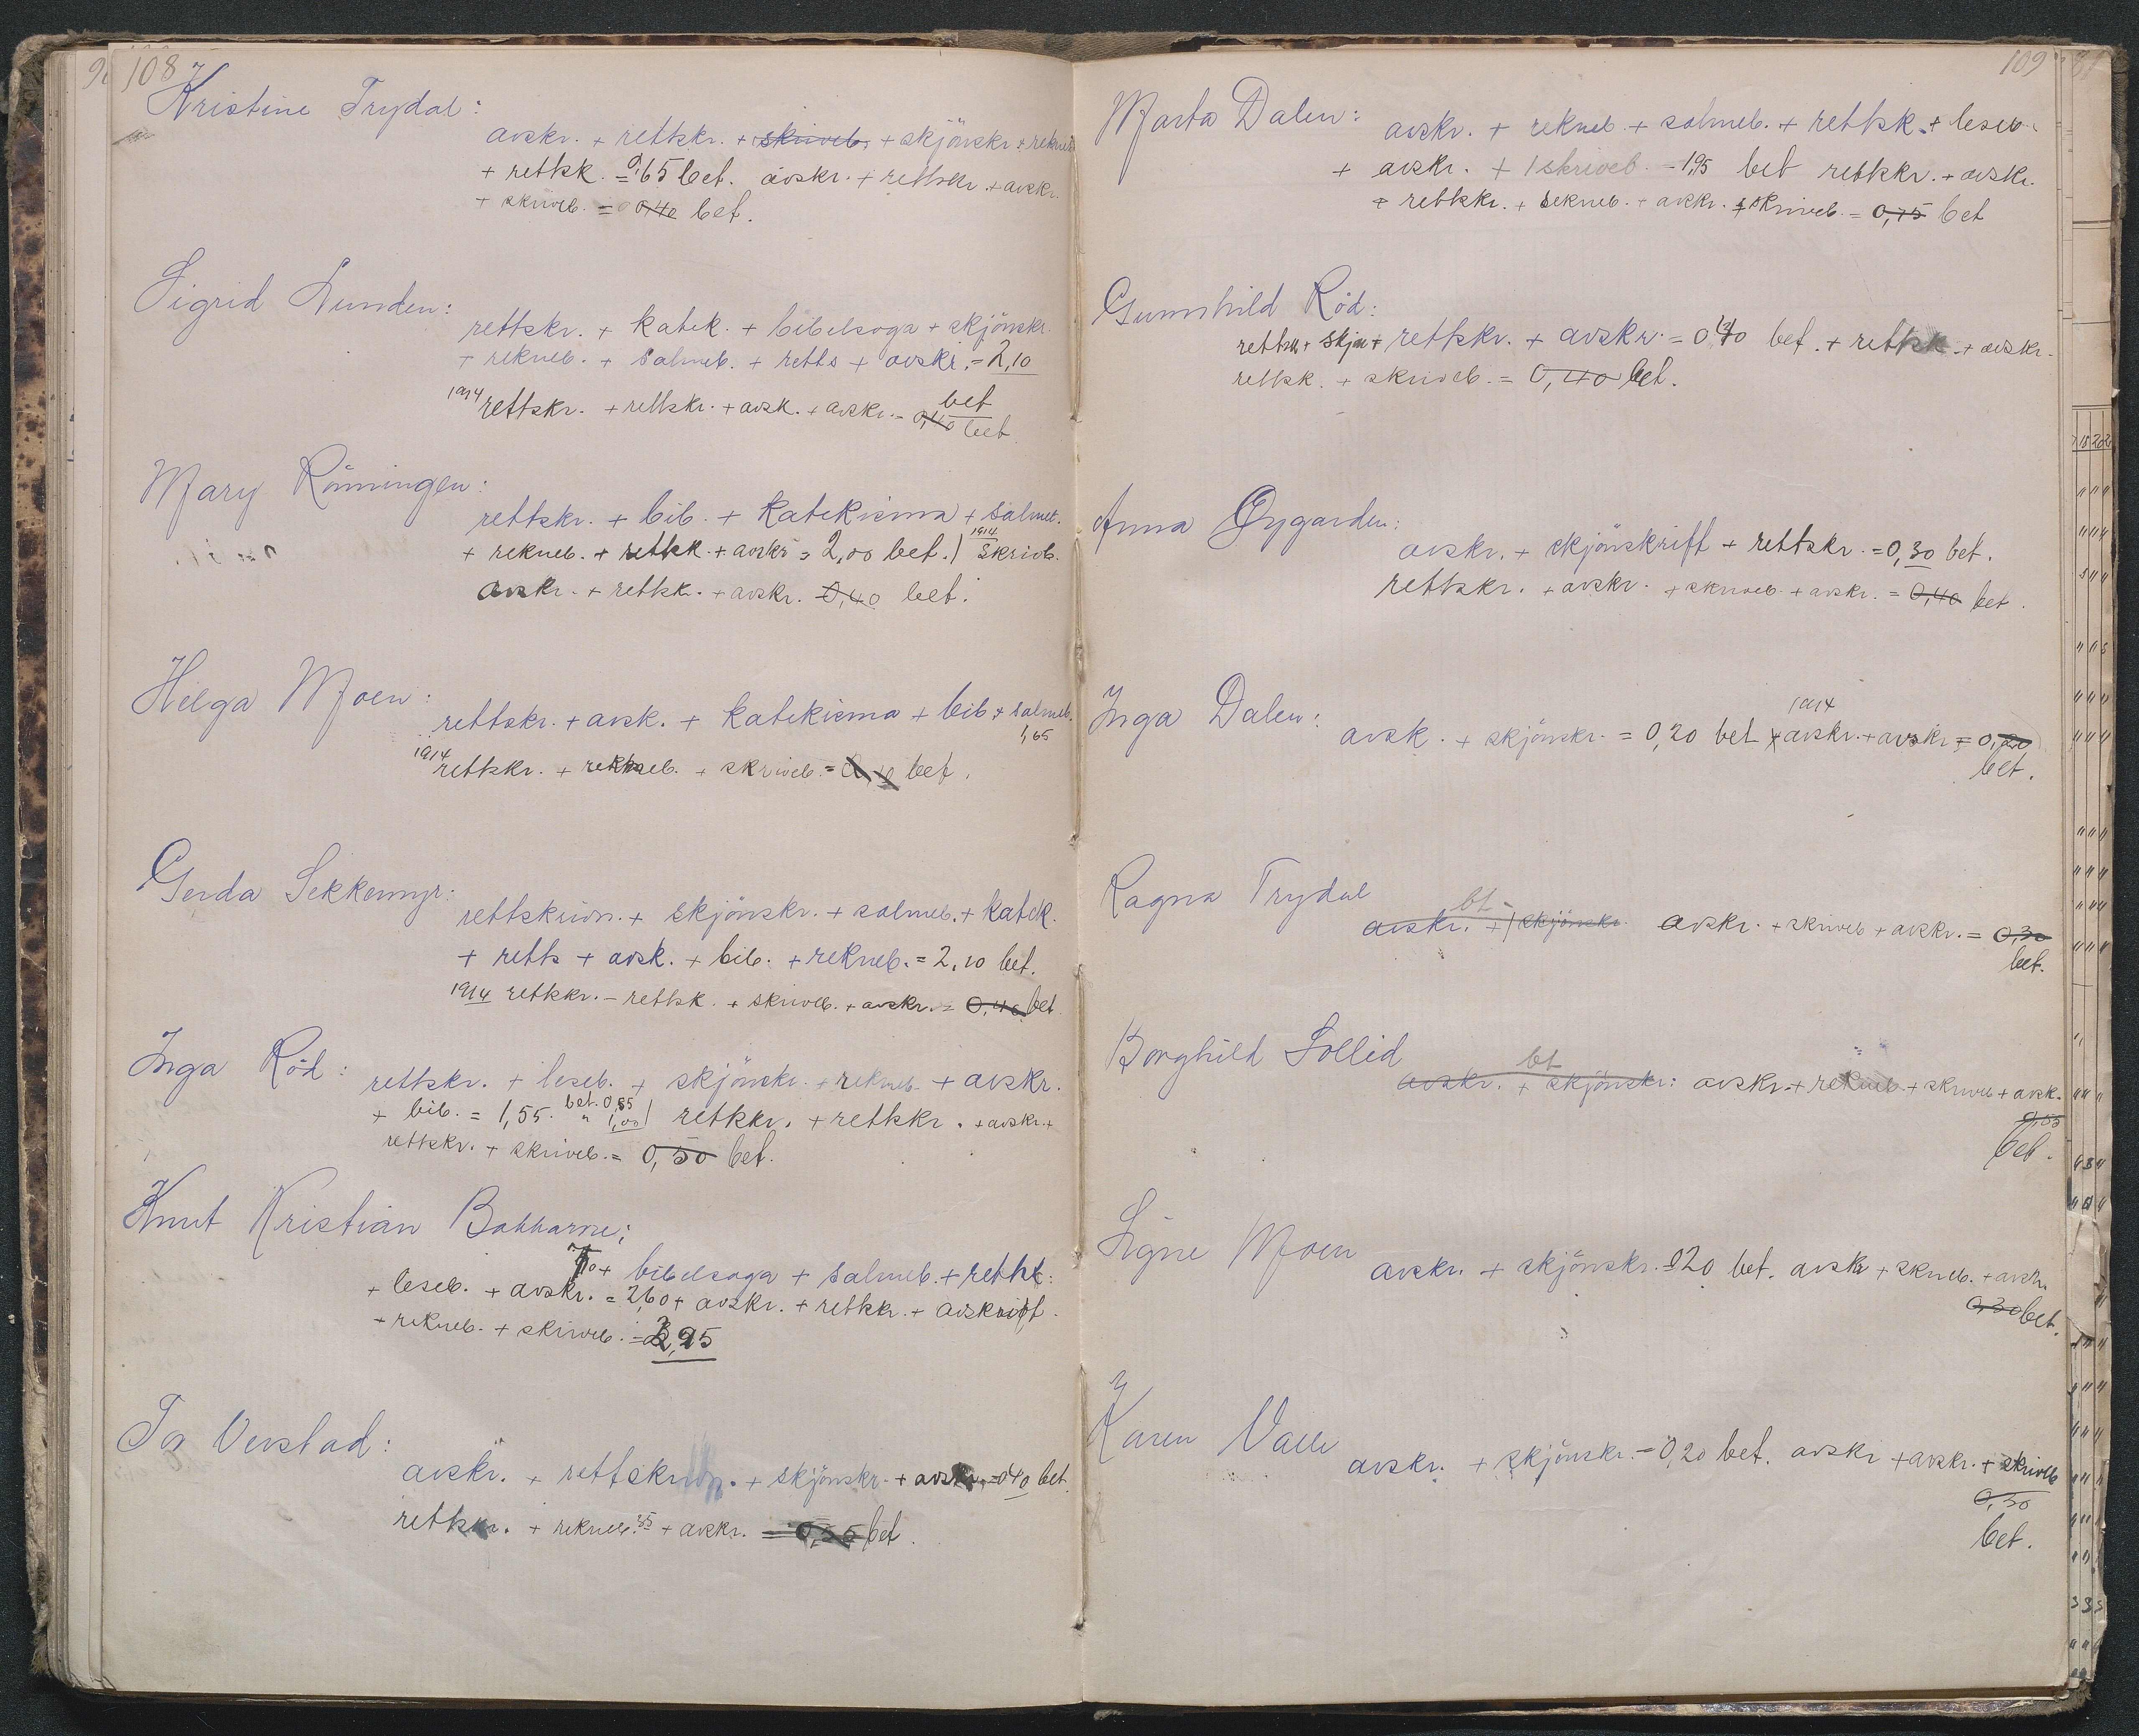 108
Kristine Trydal:
avskr. + rettskr. + skriveb. + skjönskr + rekneb
+ rettsk. = 0,65 bet. avskr. + rettskr. + avskr.
+ skriveb. = 0,40 bet.
Sigrid Lunden:
rettskr. + katek. + bibelsoga + skjönskr.
+ rekneb. + salmeb. + retts + avskr. = 2,10
bet
1914 rettskr. + rettskr. + avsk. + avskr. = 0,40 bet
Mary Rönningen:
rettskr. + bib. + katekisma + salmeb.
+ rekneb. + rettsk. + avskr = 2,00 bet. | 1914 skriveb.
avskr. + rettsk. + avskr. 0,40 bet.
Helga Moen:
rettskr. + avsk. + katekisma + bib + salmeb.
1,65
1914 rettskr. + rekneb. + skriveb. = bet.
Gerda Sekkemyr:
rettskrivn. + skjönskr. + salmeb. + katek.
+ retts + avsk. + bib. + rekneb. = 2,10 bet.
1914 rettskr. – rettsk. + skriveb. + avskr. = 0,40 bet
Inga Röd: rettskr. + leseb. + skjönskr. + rekneb. + avskr.
+ bib. = 1,55. bet. 0,55 " 1,00 | rettskr. + rettskr. + avskr. +
rettskr. + skriveb. = 0,50 bet.
Knut Kristian
+ bibelsoga + salmeb. + rettsk.
+ leseb. + avskr. = 2,60 + avskr. + rettskr. + avskrift.
+ rekneb. + skriveb. =
Tor Verstad:
avskr. + rettskrivn. + skjönskr. + avskr. = 0,40 bet.
rettskr. + rekneb. 35 + avskr. = bet.
109
Marta Dalen: avskr. + rekneb. + salmeb. + rettsk. + leseb.
+ avskr. + 1 skriveb. – 1,95 bet rettskr. + avskr.
+ rettskr. + rekneb. + avskr. + skriveb. = 0,75 bet
Gunnhild Röd:
rettskr + skjön + rettskr. + avskr. = 0,40 bet. + rettsk. + avskr.
rettsk. + skriveb. = 0,40 bet.
Anna Øygarden:
avskr. + skjönskrift + rettskr. = 0,30 bet.
rettskr. + avskr. + skriveb. + avskr. = 0,40 bet.
Inga Dalen: avsk. + skjönskr. = 0,20 bet 1914 + avskr. + avskr = 0,20
bet.
Ragna Trydal
bt.
avskr. + skjönskr. avskr. + skriveb + avskr. = 0,30
bet.
Borghild Sollid
bt
avskr. + skjönskr: avskr. + rekneb. + skriveb + avsk.
bet.
Signe Moen avskr. + skjönskr. = 0,20 bet. avskr + skriveb. + avskr.
0,30 bet.
Karen Valle
avskr. + skjönskr. = 0,20 bet. avskr + avskr. + skriveb
0,30
bet.